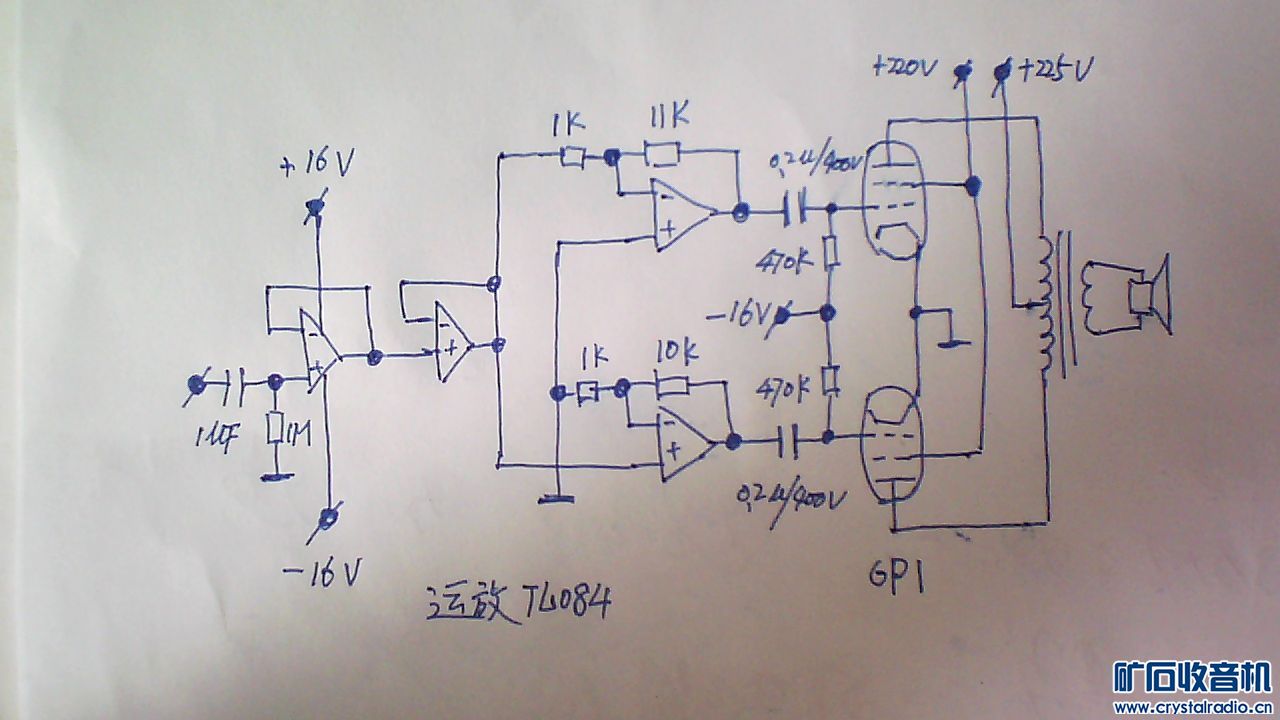 +220V
+225V
1K
11K
+16V
0.2μ/400V
470K
-16V
1K
10K
470K
1μF
1M
0.2μ/400V
-16V
6P1
运放TL084
矿石收音机
www.crystalradio.cn